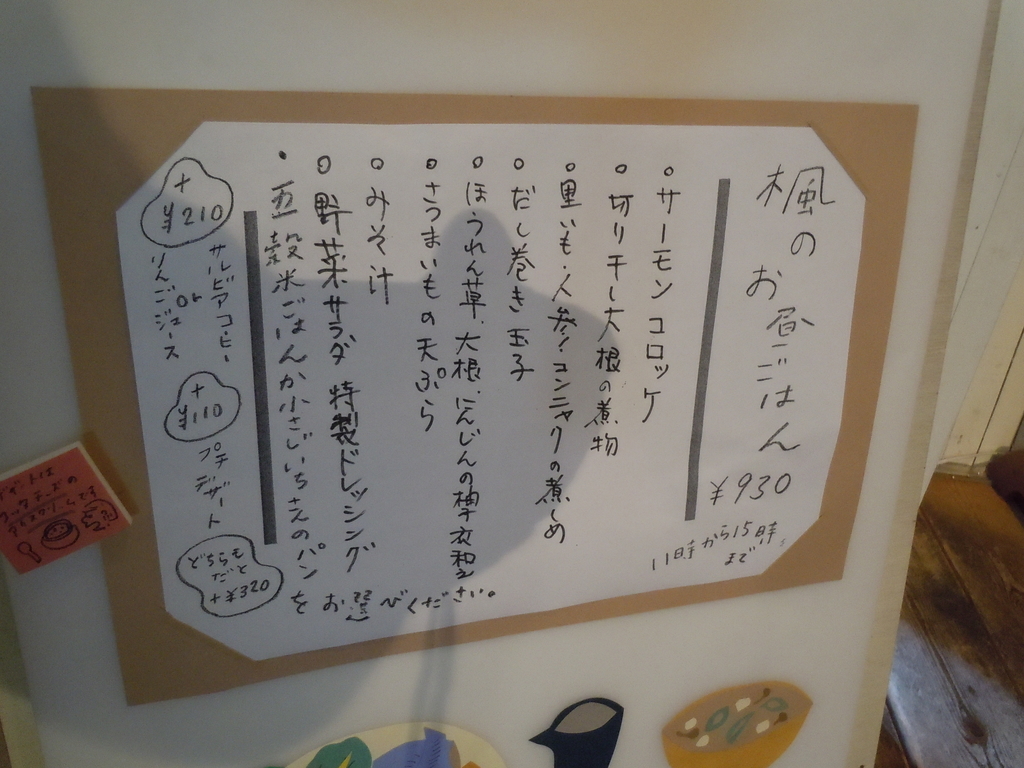 楓のお昼ごはん
¥930
11時から15時まで
○サーモンコロッケ
○切り干し大根の煮物
○里いも・人参・コンニャクの煮しめ
○だし巻き玉子
○ほうれん草、大根、にんじんの柚衣和え
○さつまいもの天ぷら
○みそ汁
○野菜サラダ 特製ドレッシング
・五穀米ごはんか小さじいちさんのパン
をお選びください。
+¥210
サルビアコーヒー
or
りんごジュース
+¥110
プチデザート
どちらも
だと
+¥320